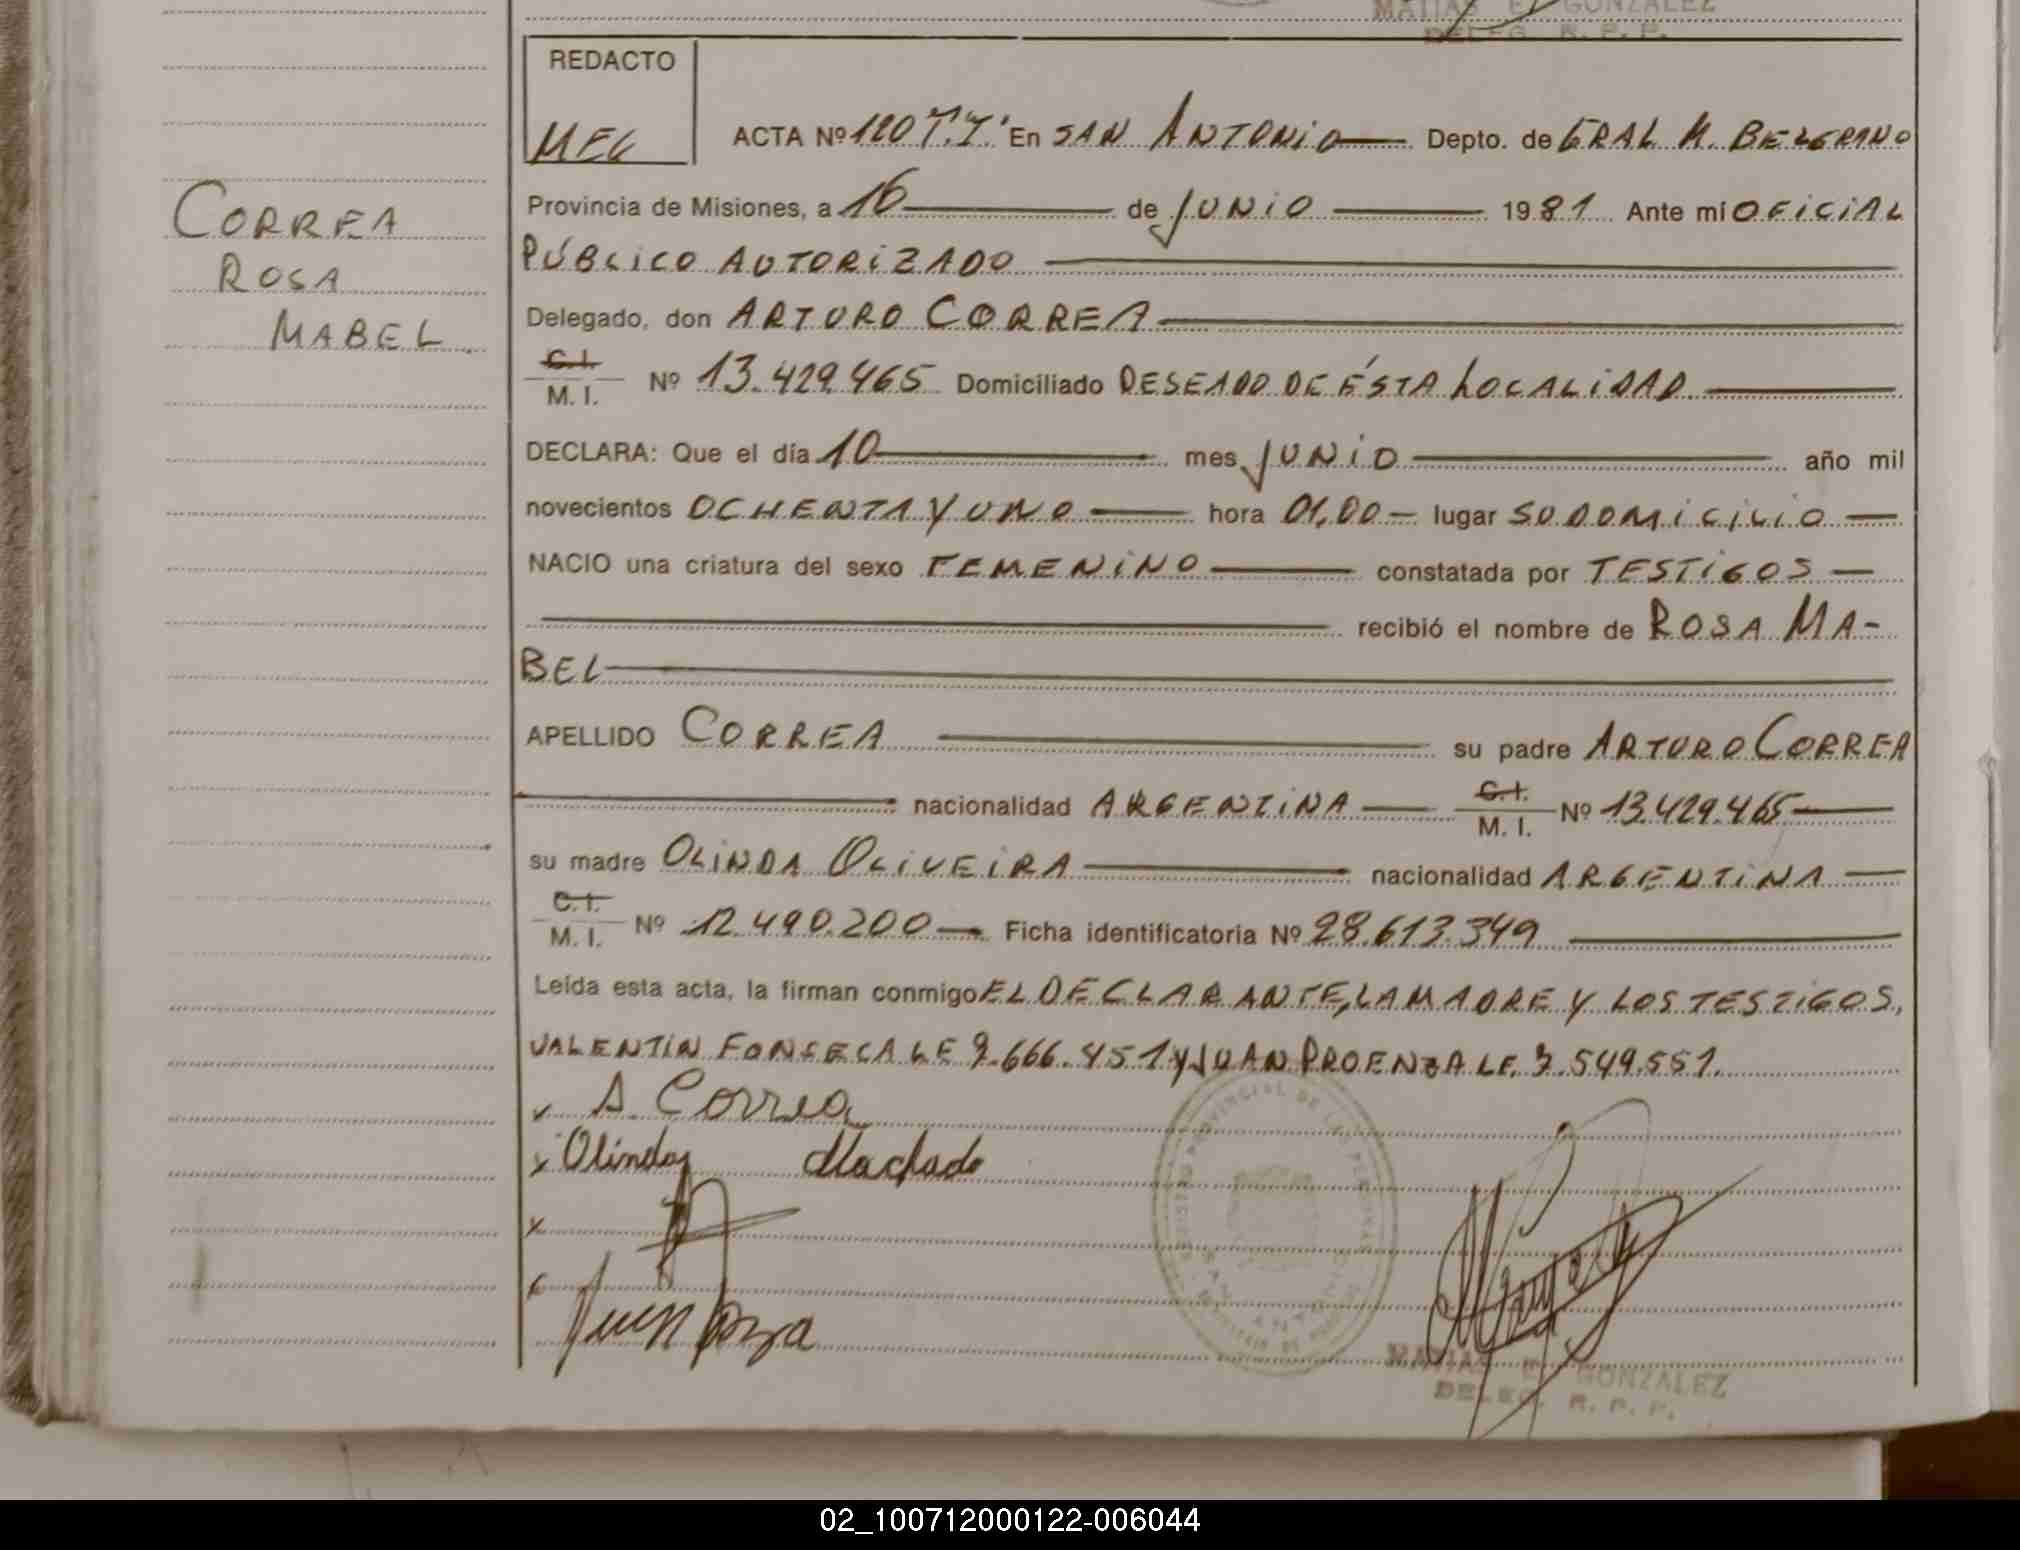 MATIAS E. GONZALEZ
DELEG. R. P. P.
REDACTO
MEG
ACTA Nº 120 T.I. En SAN ANTONIO Depto. de GRAL M. BELGRANO
Provincia de Misiones, a 16 de JUNIO 1981 Ante mí OFICIAL
PÚBLICO AUTORIZADO
Delegado, don ARTURO CORREA
C.I. M.I. Nº 13.429.465 Domiciliado DESEADO DE ÉSTA LOCALIDAD.
DECLARA: Que el día 10 mes JUNIO año mil
novecientos OCHENTA Y UNO hora 01,00 lugar SU DOMICILIO
NACIO una criatura del sexo FEMENINO constatada por TESTIGOS
recibió el nombre de ROSA MA-
BEL
APELLIDO CORREA su padre ARTURO CORREA
nacionalidad ARGENTINA C.I. M.I. Nº 13.429.465
su madre OLINDA OLIVEIRA nacionalidad ARGENTINA
C.I. M.I. Nº 12.490.200 Ficha identificatoria Nº 28.613.349
Leída esta acta, la firman conmigo EL DECLARANTE, LA MADRE Y LOS TESTIGOS,
VALENTIN FONSECA LE 7.666.451 Y JUAN PROENZA LE. 7.549.551.
A. Correa
Olinda Machado
MATIAS E. GONZALEZ
DELEG. R. P. P.
CORREA
ROSA
MABEL
02_100712000122-006044